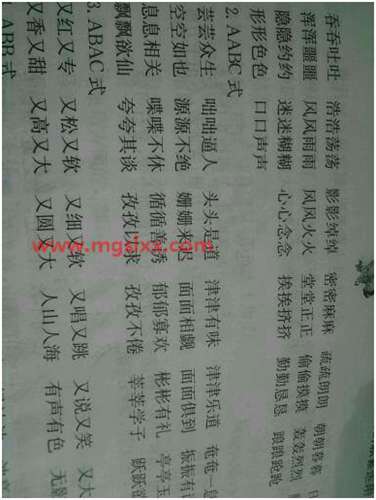 吞吞吐吐 浩浩荡荡 影影绰绰 密密麻麻 疏疏朗朗 朝朝暮暮
浑浑噩噩 风风雨雨 风风火火 堂堂正正 偷偷摸摸 轰轰烈烈
隐隐约约 迷迷糊糊 心心念念 挨挨挤挤 勤勤恳恳 踉踉跄跄
形形色色 口口声声
2. AABC式
芸芸众生 咄咄逼人 头头是道 津津有味 津津乐道 奄奄一
空空如也 源源不绝 姗姗来迟 面面相觑 面面俱到 振振有
息息相关 喋喋不休 循循善诱 郁郁寡欢 彬彬有礼 亭亭玉
飘飘欲仙 夸夸其谈 孜孜以求 孜孜不倦 莘莘学子 跃跃欲
3. ABAC式
又红又专 又松又软 又细又软 又唱又跳 又说又笑 又大
又香又甜 又高又大 又圆又大 人山人海 有声有色 无
ABB式
www.mgslxx.com